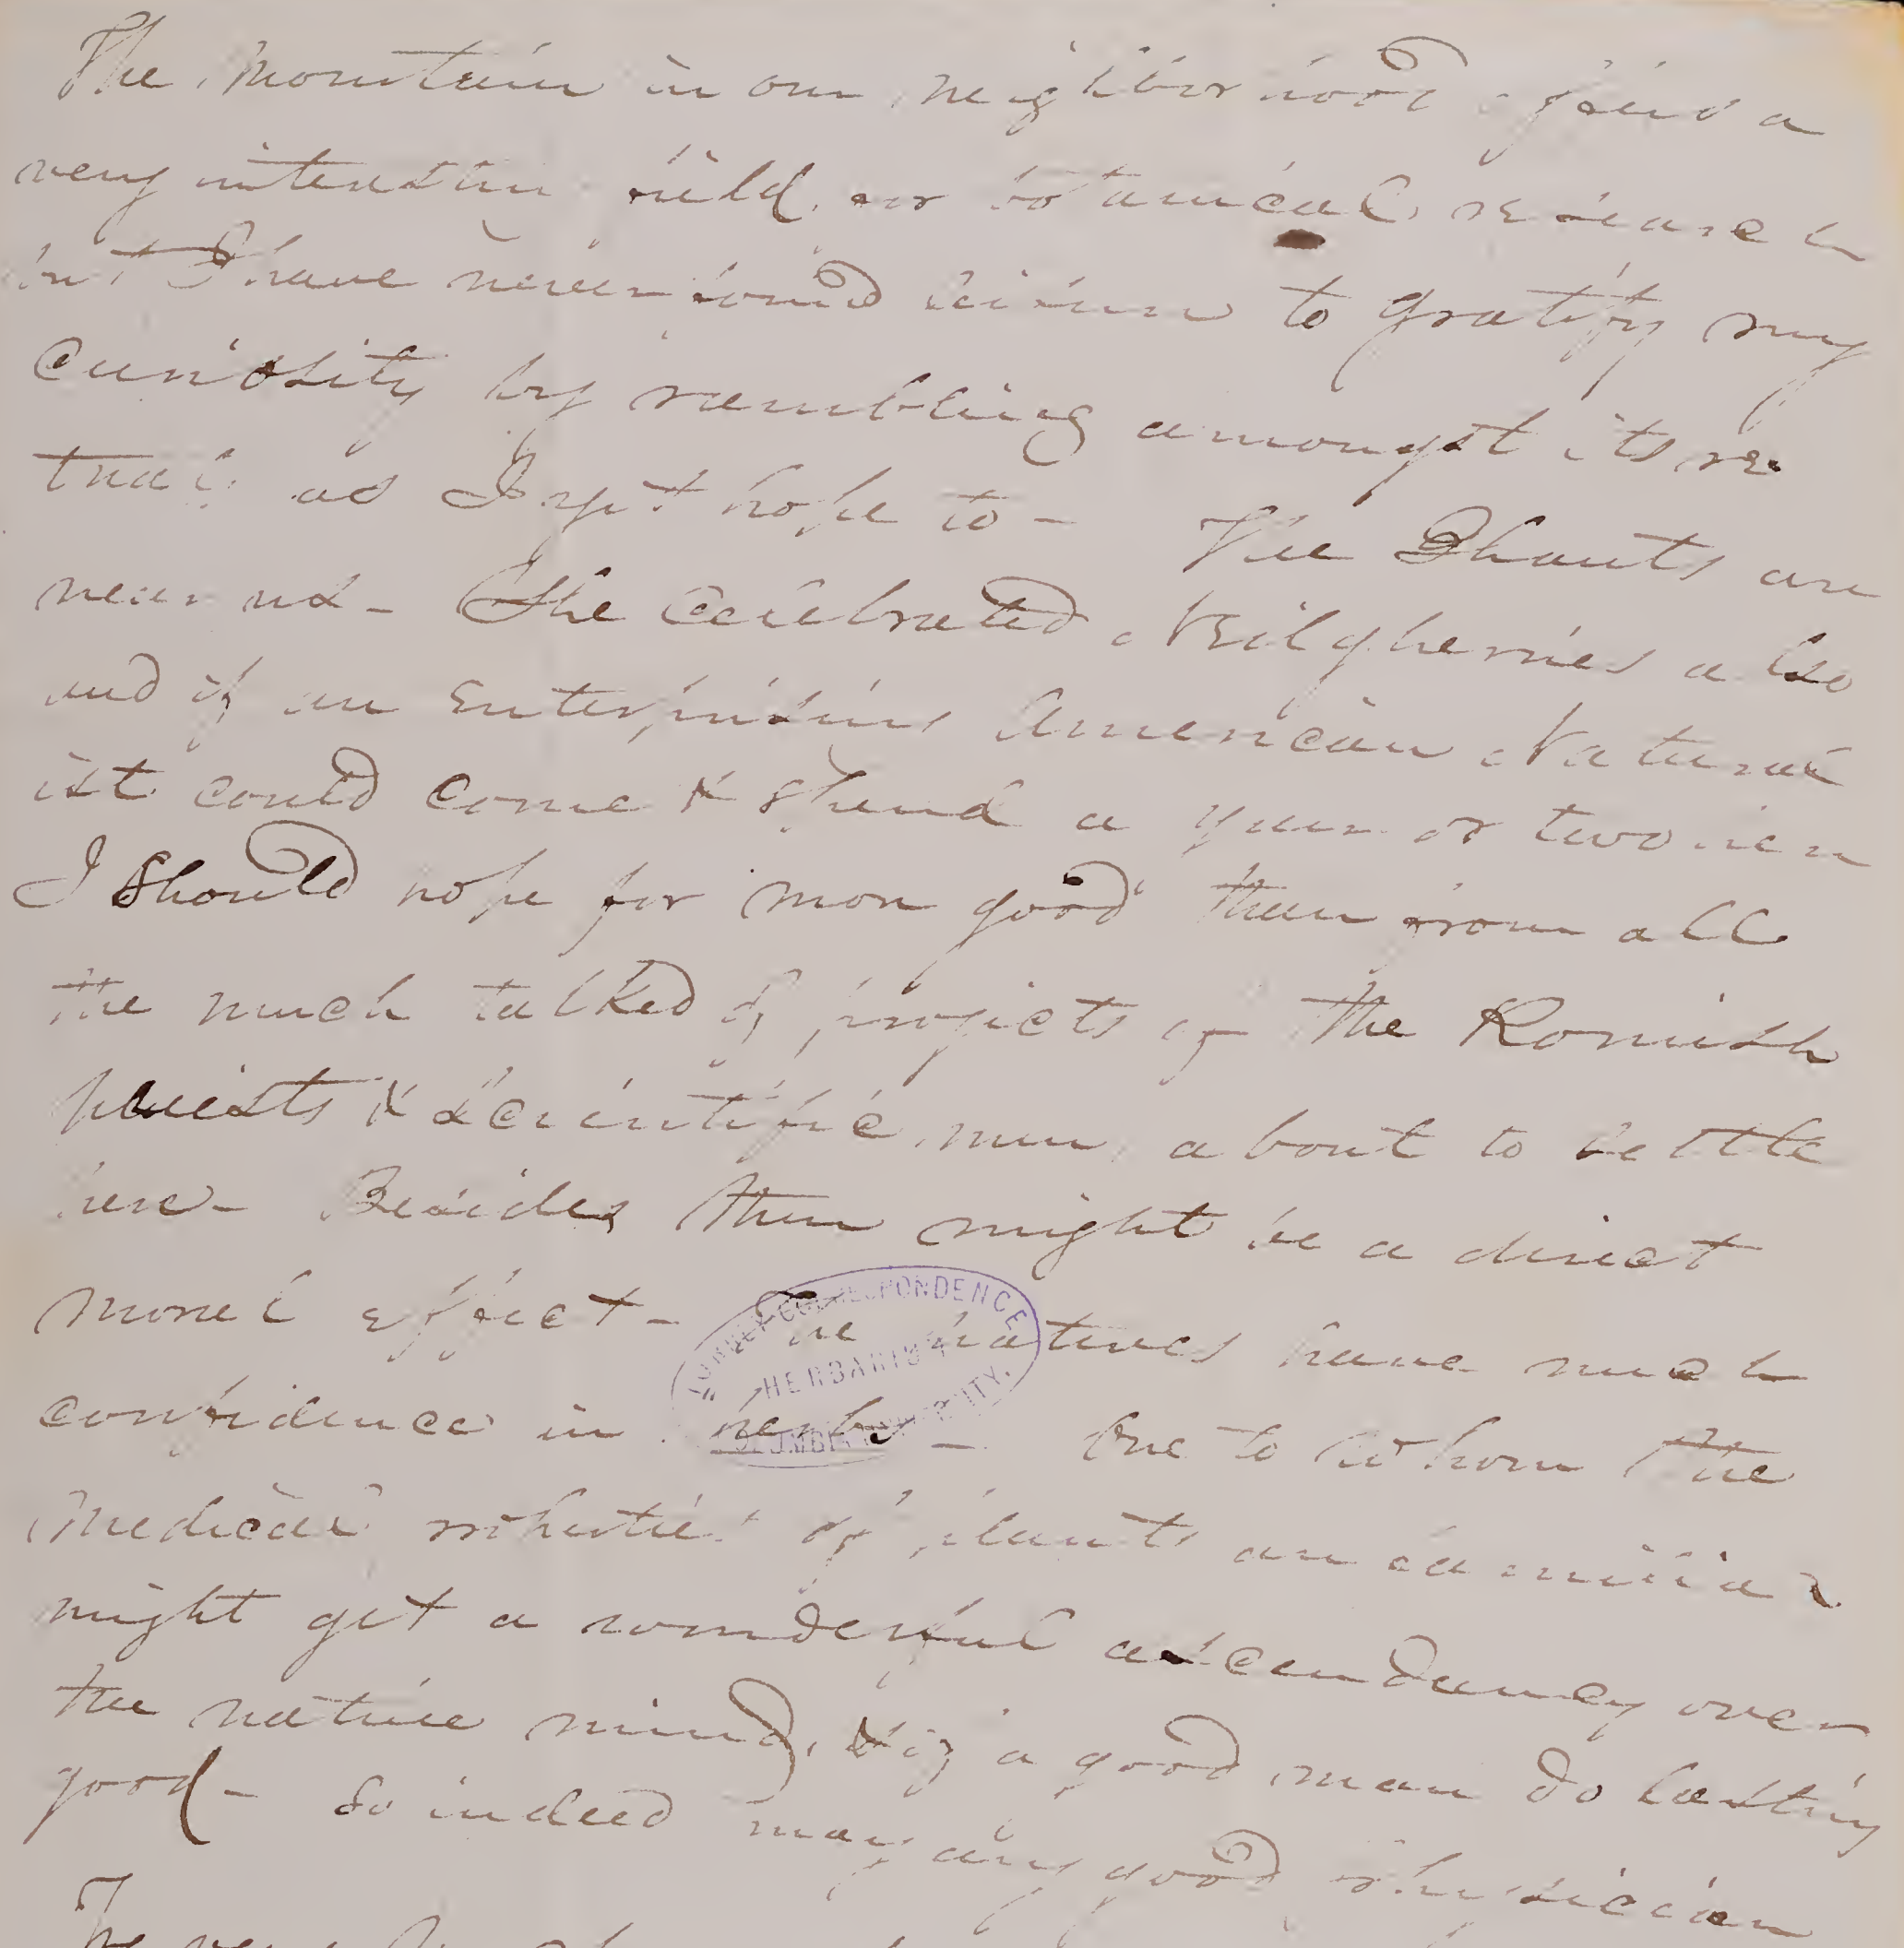 The mountain in our neighborhood affords a
very interesting field for botanical research
but I have never found leisure to gratify my
curiosity by rambling amongst its re
treats as I yet hope to - The Ghauts are
near us - The celebrated Neilgherries also
and if an enterprising American Natural
ist could come & spend a year or two here
I should hope for more good than from all
the much talked of projects of the Romish
priests & scientific men about to settle
here - Besides there might be a direct
moral effect - The natives have much
confidence in herbs - One to whom the
medical properties of plants are familiar
might get a wonderful ascendency over
the native mind, & if a good man do lasting
good - So indeed may any good physician
TORREY CORRESPONDENCE
HERBARIUM
COLUMBIA UNIVERSITY.